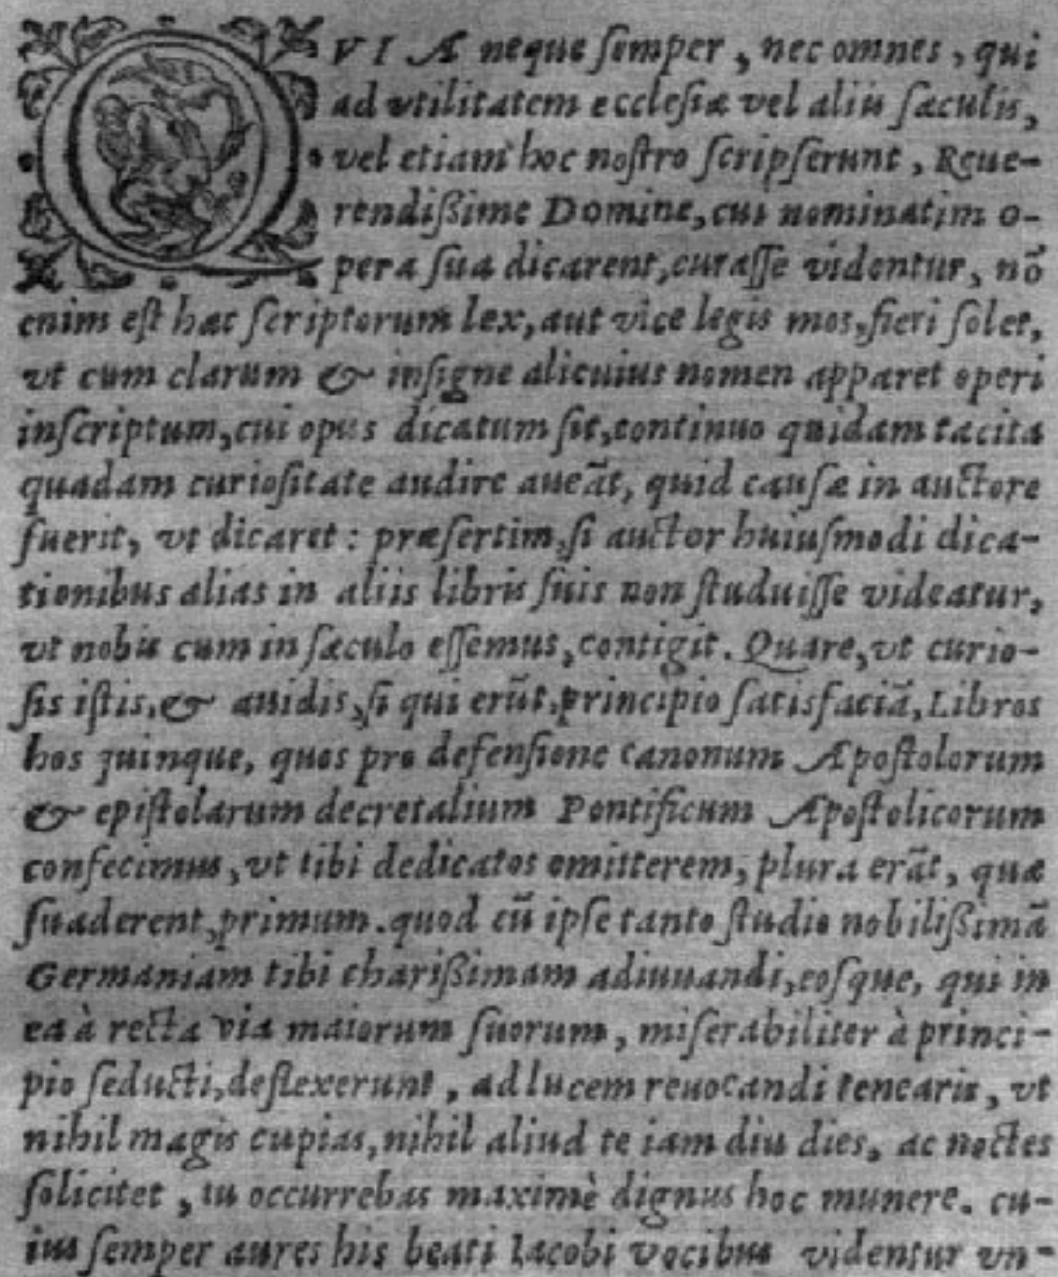 QVIA neque ſemper, nec omnes, qui
ad vtilitatem eccleſiæ vel aliis ſæculis,
vel etiam hoc noſtro ſcripſerunt, Reue-
rendißime Domine, cui nominatim o-
pera ſua dicarent, curaſſe videntur, nõ
enim eſt hæc ſcriptorum lex, aut vice legis mos, fieri ſolet,
vt cum clarum & inſigne alicuius nomen apparet operi
inſcriptum, cui opus dicatum ſit, continuo quidam tacita
quadam curioſitate audire aueãt, quid cauſæ in auctore
fuerit, vt dicaret: præſertim, ſi auctor huiuſmodi dica-
tionibus alias in aliis libris ſuis non ſtuduiſſe videatur,
vt nobis cum in ſæculo eſſemus, contigit. Quare, vt curio-
ſis iſtis, & auidis, ſi qui erũt, principio ſatisfaciã, Libros
hos quinque, quos pro defenſione canonum Apoſtolorum
& epiſtolarum decretalium Pontificum Apoſtolicorum
confecimus, vt tibi dedicatos omitterem, plura erãt, quæ
ſuaderent, primum. quod cũ ipſe tanto ſtudio nobilißimã
Germaniam tibi charißimam adiuuandi, eoſque, qui in
ea à recta via maiorum ſuorum, miſerabiliter à princi-
pio ſeducti, deflexerunt, ad lucem reuocandi tenearis, vt
nihil magis cupias, nihil aliud te iam diu dies, ac noctes
ſolicitet, tu occurrebas maximè dignus hoc munere. cu-
ius ſemper aures his beati Iacobi vocibus videntur vn-